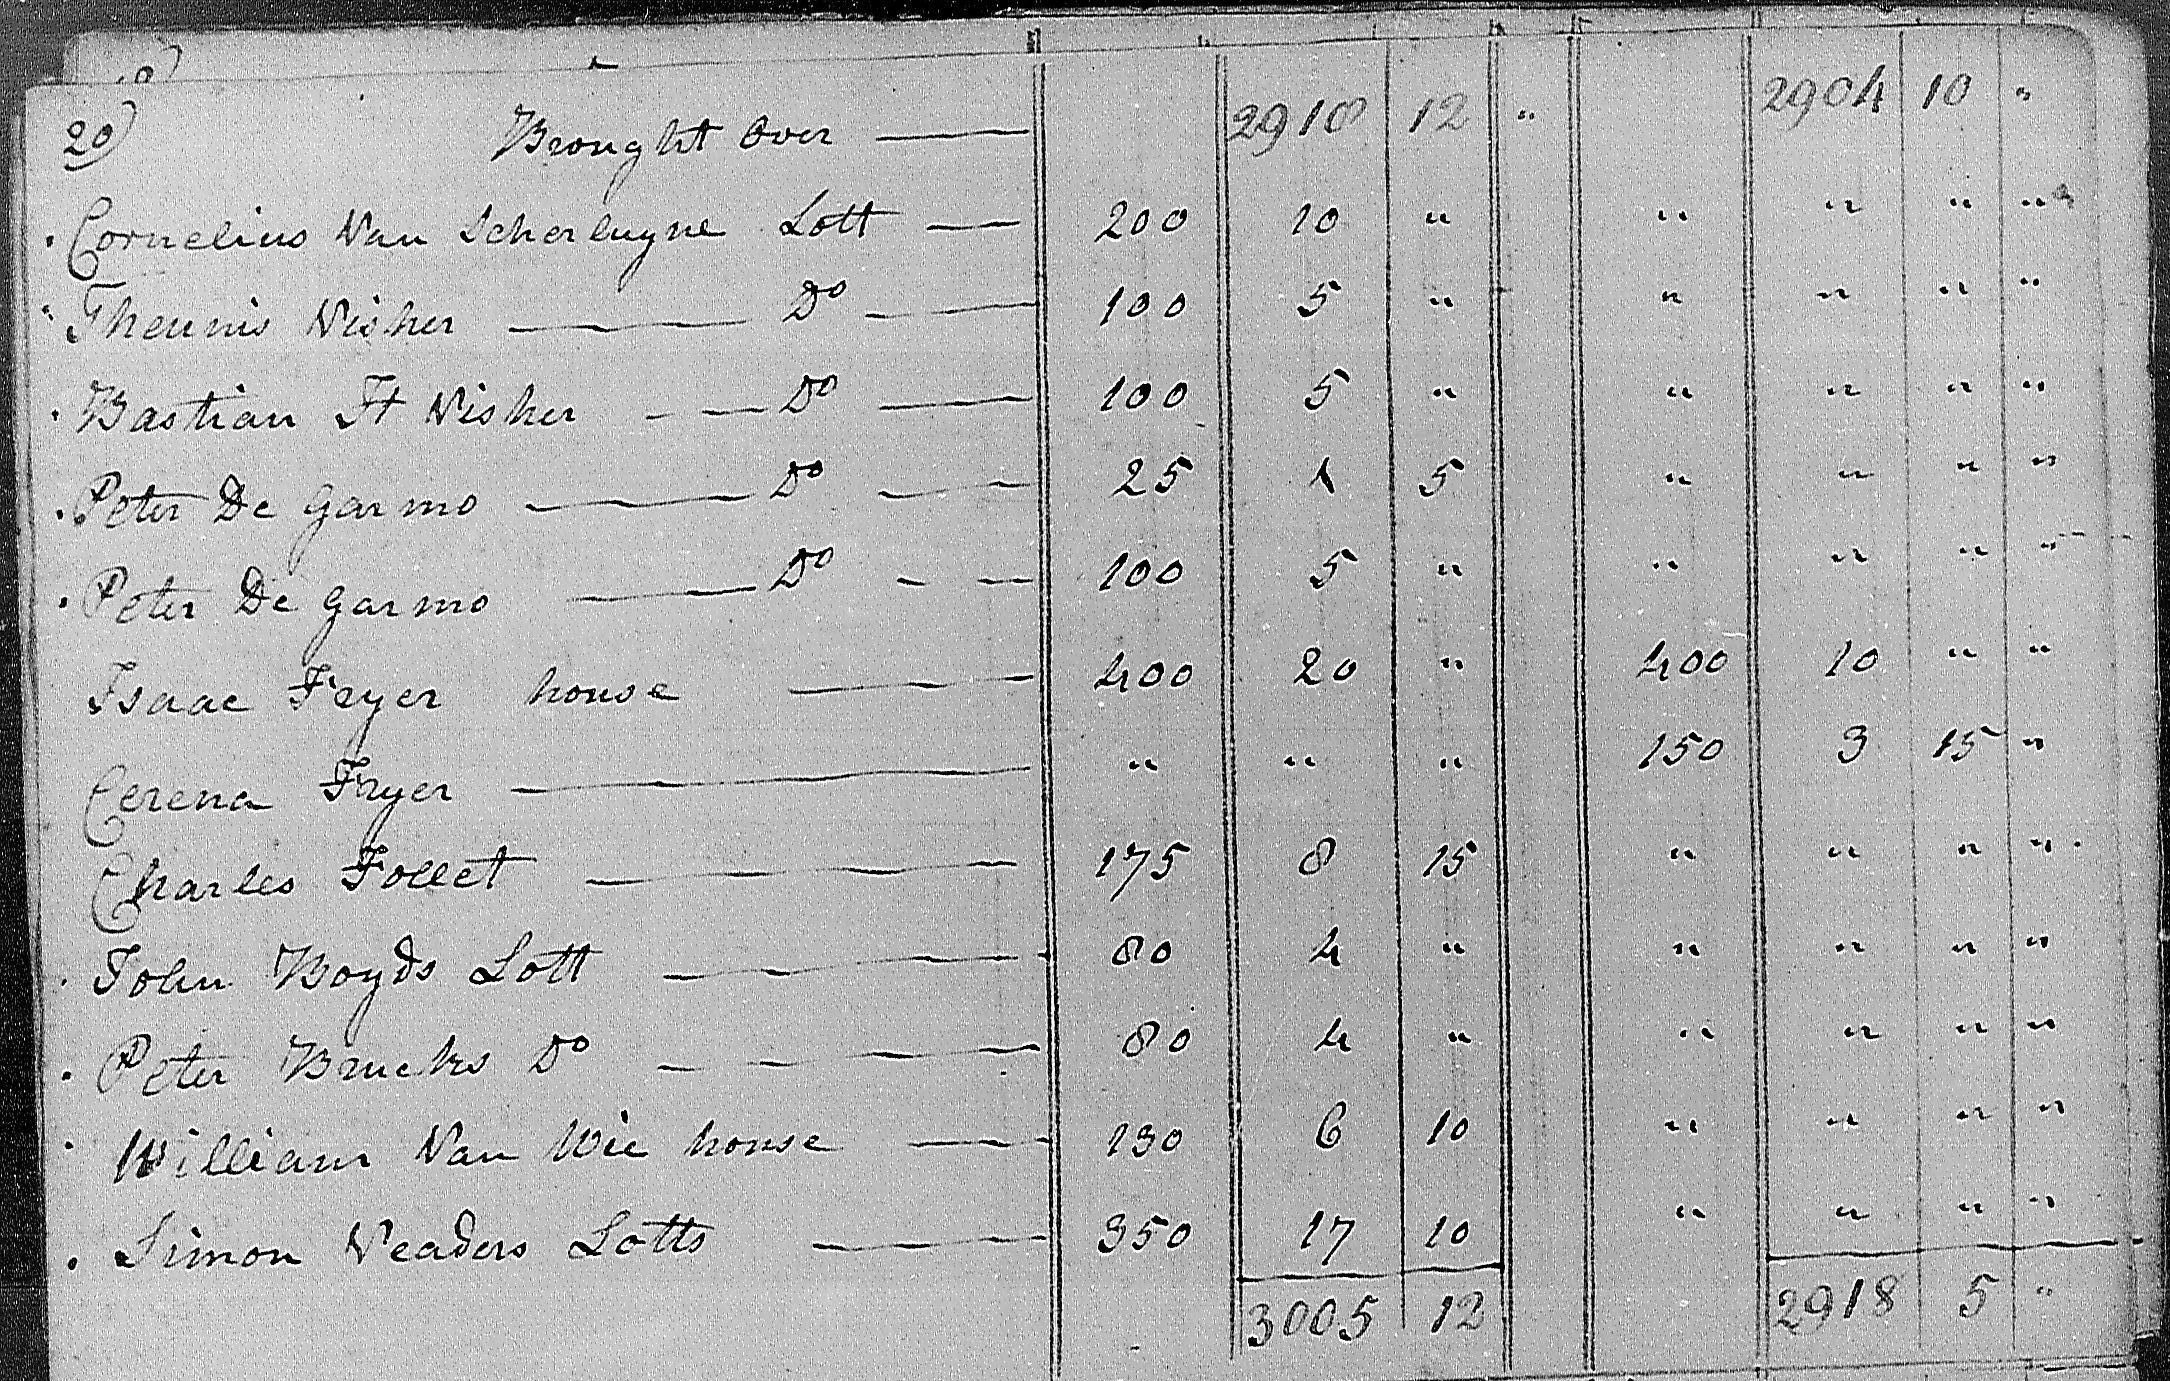 20)
Brought Over — 2918 12 " 2904 10 "
Cornelius Van Scherluyne Lott — 200 10 " " " " "
Theunis Visher — Do — 100 5 " " " " "
Bastian Ft Visher — Do — 100 5 " " " " "
Peter De Garmo — Do — 25 1 5 " " " "
Peter De Garmo — Do — 100 5 " " " " "
Isaac Fryer house — 400 20 " 400 10 " "
Cerena Fryer — " " " 150 3 15 "
Charles Follet — 175 8 15 " " " "
John Boyds Lott — 80 4 " " " " "
Peter Brucks Do — 80 4 " " " " "
William Van Wie house — 130 6 10 " " " "
Simon Veaders Lotts — 350 17 10 " " " "
3005 12 2918 5 "